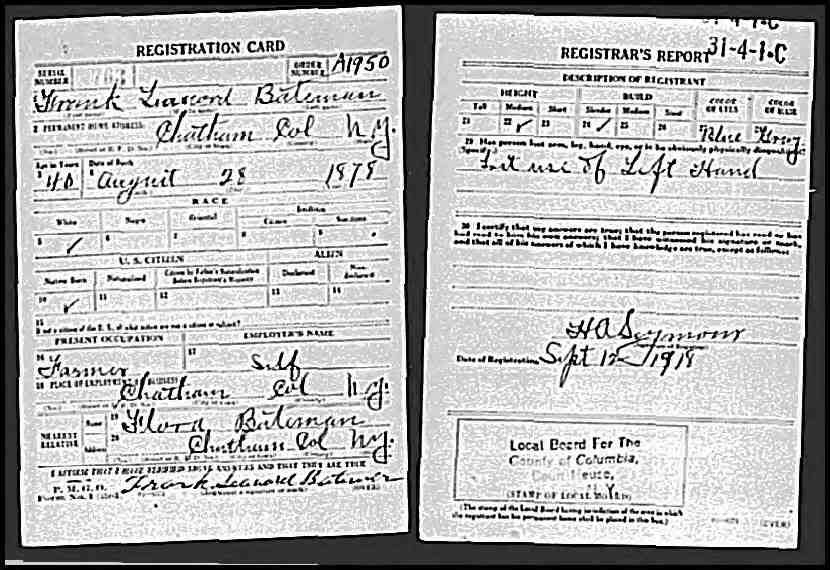 REGISTRATION CARD
SERIAL NUMBER 763 ORDER NUMBER A1950
Frank Leaword Bateman
2 PERMANENT HOME ADDRESS:
Chatham Col N.Y.
Age in Years Date of Birth
40 August 28 1878
RACE
White Negro Oriental Indian
Citizen
5 ✓ 6 7 8 9
U. S. CITIZEN ALIEN
Native Born Naturalized Citizen by Father's Naturalization Before Registrant's Majority Declarant Non-declarant
10 ✓ 11 12 13 14
15
If not a citizen of the U. S., of what nation are you a citizen or subject?
PRESENT OCCUPATION EMPLOYER'S NAME
16 Farmer 17 Self
18 PLACE OF EMPLOYMENT OR BUSINESS
Chatham Col N.Y.
NEAREST RELATIVE Name 19 Flora Bateman
Address 20 Chatham Col N.Y.
I AFFIRM THAT I HAVE VERIFIED ABOVE ANSWERS AND THAT THEY ARE TRUE
P. M. G. O.
Form No. 1 Frank Leaword Bateman
(OVER)
31-4-1-C
REGISTRAR'S REPORT 31-4-1-C
DESCRIPTION OF REGISTRANT
HEIGHT BUILD COLOR OF EYES COLOR OF HAIR
Tall Medium Short Slender Medium Stout
21 22 ✓ 23 24 ✓ 25 26 Blue Gray
29 Has person lost arm, leg, hand, eye, or is he obviously physically disqualified?
(Specify.)
Lost use of Left Hand
30 I certify that my answers are true; that the person registered has read or has
had read to him his own answers; that I have witnessed his signature or mark,
and that all of his answers of which I have knowledge are true, except as follows:
H A Seymour
Date of Registration Sept 12 1918
Local Board For The
County of Columbia,
Court House,
N. Y.
(STAMP OF LOCAL BOARD)
(The stamp of the Local Board having jurisdiction of the area in which
the registrant has his permanent home shall be placed in this box.)
(OVER)